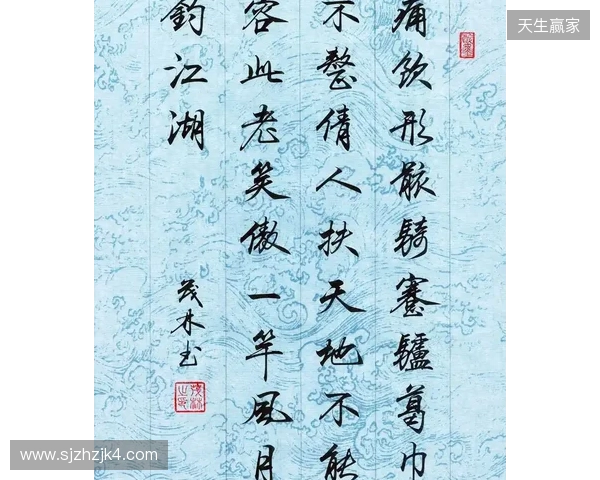 痛飲形骸騎蹇驢葛巾
不整倩人扶天地不能
容此老笑傲一竿風月
釣江湖
茂林书
天生赢家
www.sjzhzjk4.com